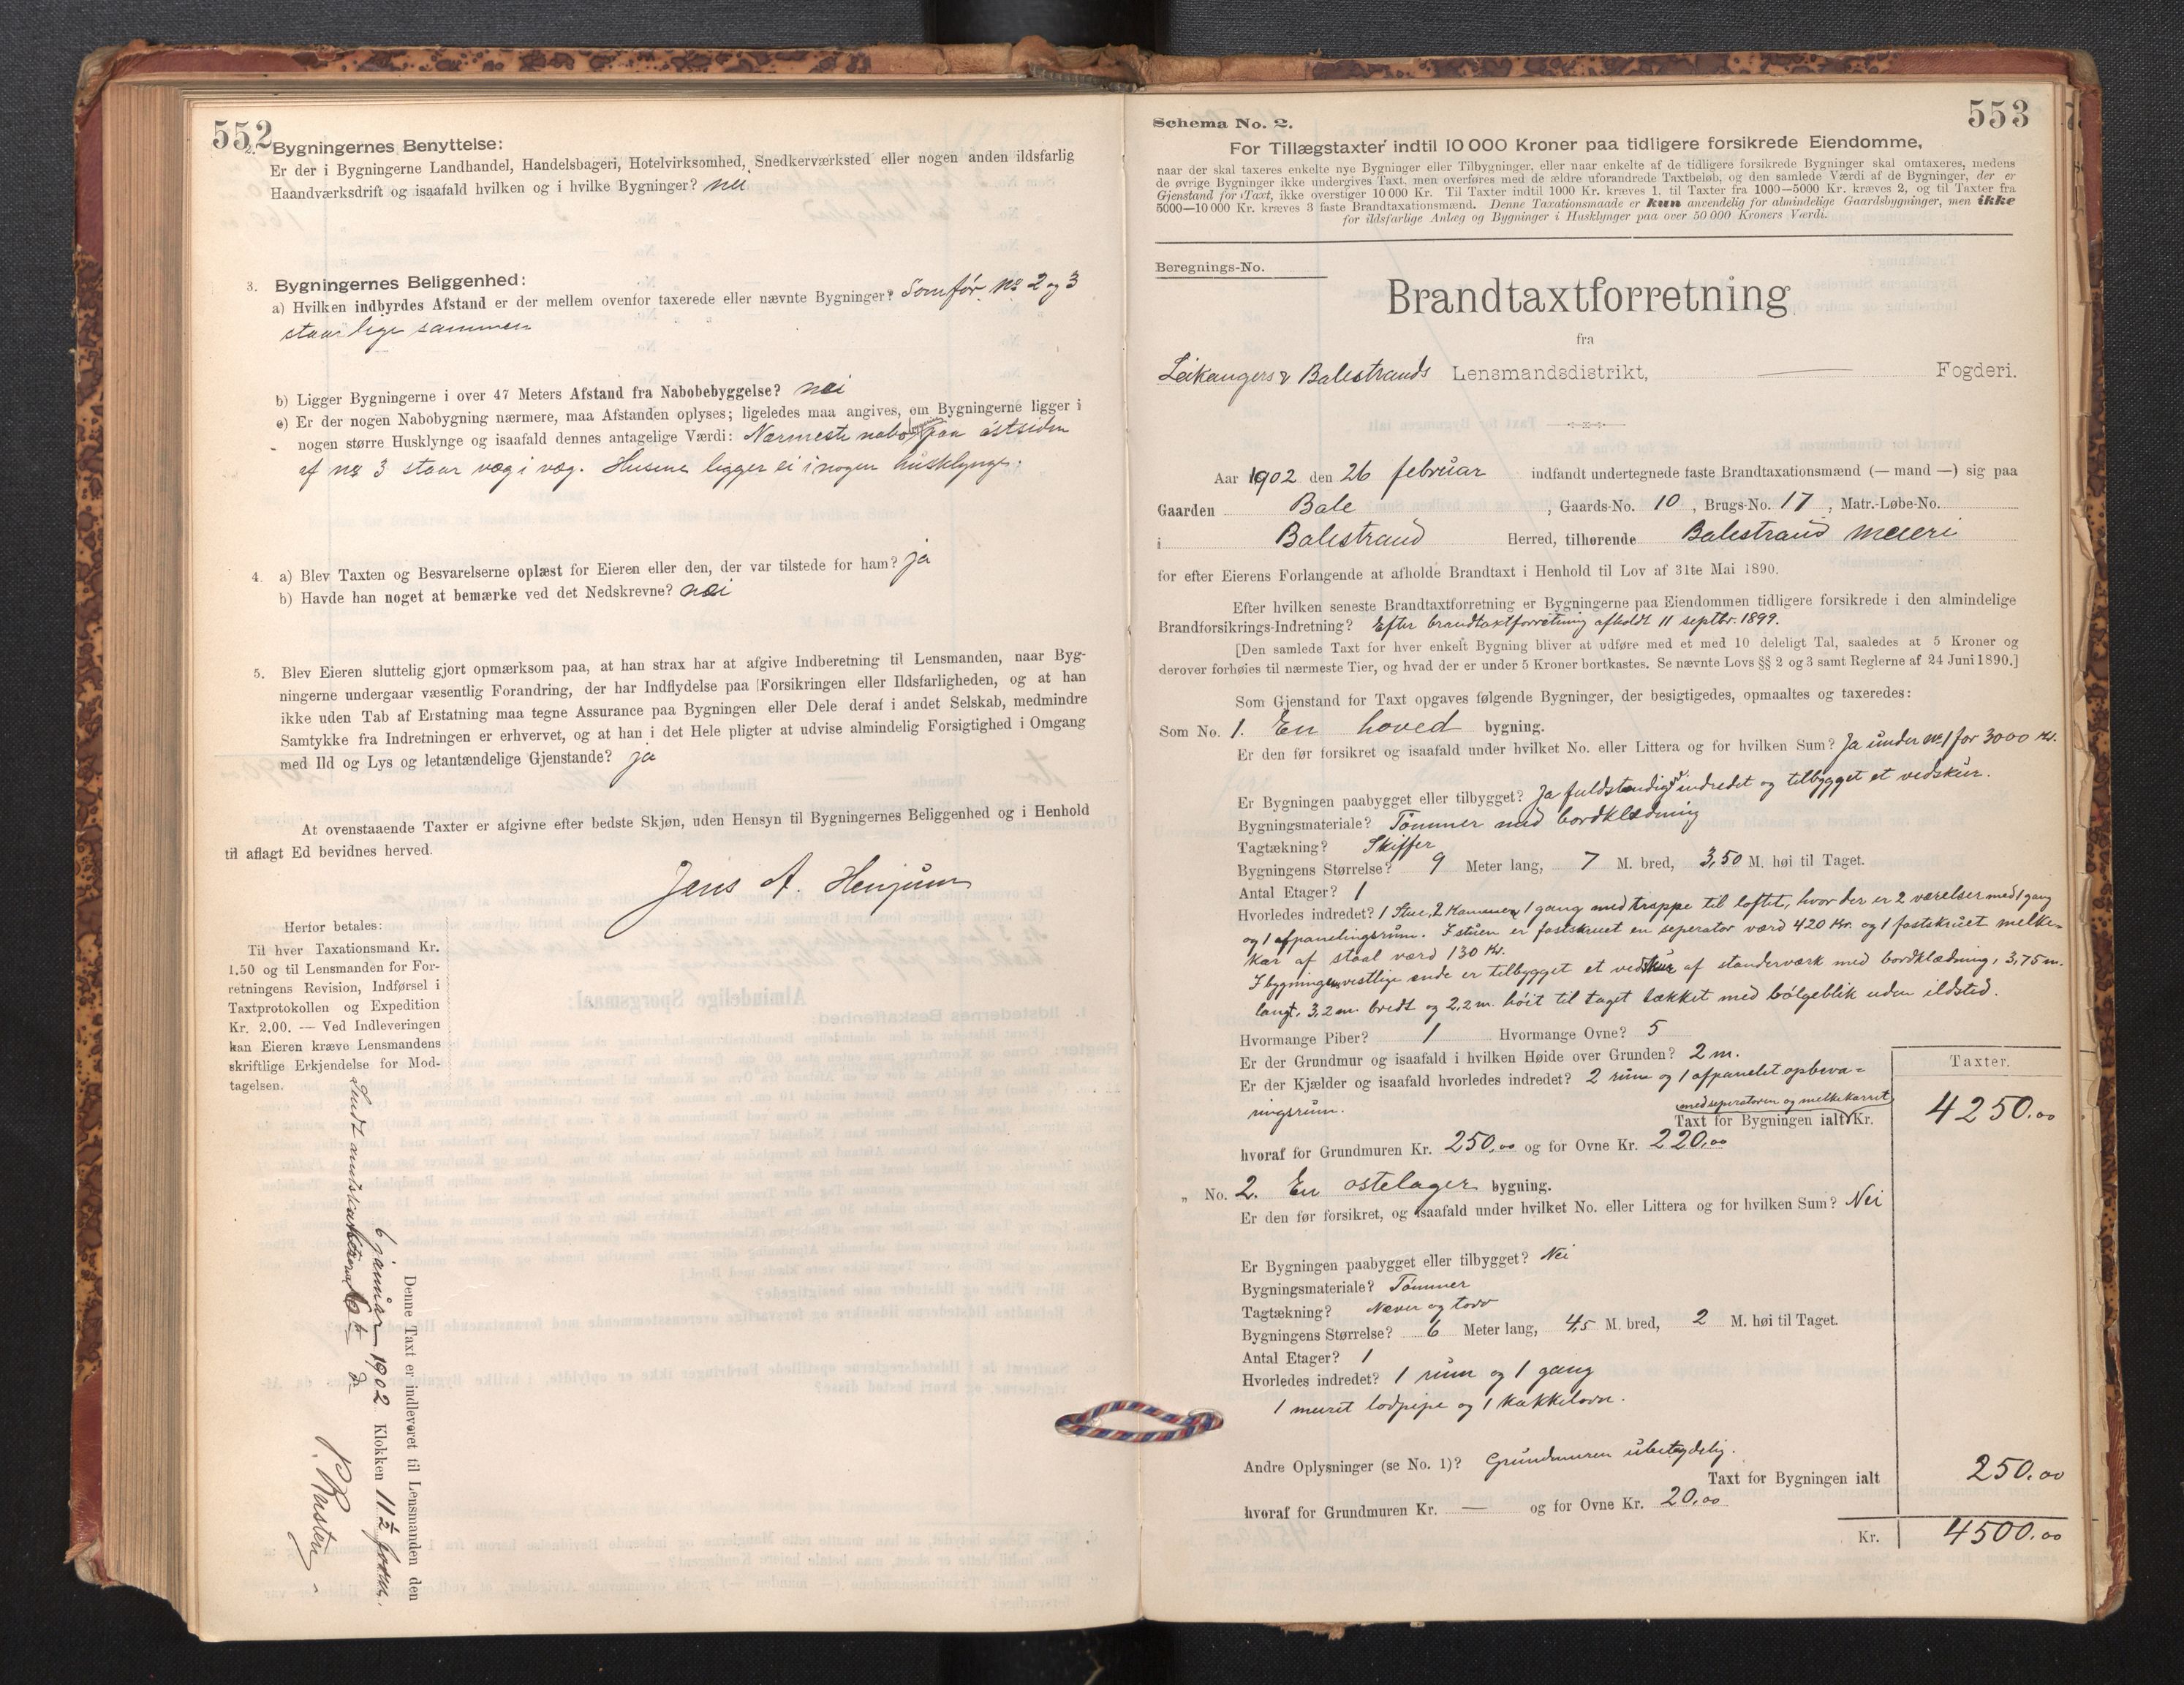 552
2. Bygningernes Benyttelse:
Er der i Bygningerne Landhandel, Handelsbageri, Hotelvirksomhed, Snedkerværksted eller nogen anden ildsfarlig
Haandværksdrift og isaafald hvilken og i hvilke Bygninger? nei
3. Bygningernes Beliggenhed:
a) Hvilken indbyrdes Afstand er der mellem ovenfor taxerede eller nævnte Bygninger? Somfør. No 2 og 3
staar lige sammen
b) Ligger Bygningerne i over 47 Meters Afstand fra Nabobebyggelse? nei
c) Er der nogen Nabobygning nærmere, maa Afstanden oplyses; ligeledes maa angives, om Bygningerne ligger i
nogen større Husklynge og isaafald dennes antagelige Værdi: Nærmeste nabobygning paa østsiden
af no 3 staar væg i væg. Husene ligger ei i nogen husklynge.
4. a) Blev Taxten og Besvarelserne oplæst for Eieren eller den, der var tilstede for ham? ja
b) Havde han noget at bemærke ved det Nedskrevne? nei
5. Blev Eieren sluttelig gjort opmærksom paa, at han strax har at afgive Indberetning til Lensmanden, naar Byg-
ningerne undergaar væsentlig Forandring, der har Indflydelse paa Forsikringen eller Ildsfarligheden, og at han
ikke uden Tab af Erstatning maa tegne Assurance paa Bygningen eller Dele deraf i andet Selskab, medmindre
Samtykke fra Indretningen er erhvervet, og at han i det Hele pligter at udvise almindelig Forsigtighed i Omgang
med Ild og Lys og letantændelige Gjenstande? ja
At ovenstaaende Taxter er afgivne efter bedste Skjøn, uden Hensyn til Bygningernes Beliggenhed og i Henhold
til aflagt Ed bevidnes herved.
Jens A. Henjum
Herfor betales:
Til hver Taxationsmand Kr.
1.50 og til Lensmanden for For-
retningens Revision, Indførsel i
Taxtprotokollen og Expedition
Kr. 2.00. — Ved Indleveringen
kan Eieren kræve Lensmandens
skriftlige Erkjendelse for Mod-
tagelsen.
Denne Taxt er indleveret til Lensmanden den
6 januar 1902 Klokken 11 1/2 form.
553
Schema No. 2.
For Tillægstaxter indtil 10 000 Kroner paa tidligere forsikrede Eiendomme,
naar der skal taxeres enkelte nye Bygninger eller Tilbygninger, eller naar enkelte af de tidligere forsikrede Bygninger skal omtaxeres, medens
de øvrige Bygninger ikke undergives Taxt, men overføres med de ældre uforandrede Taxtbeløb, og den samlede Værdi af de Bygninger, der er
Gjenstand for Taxt, ikke overstiger 10 000 Kr. Til Taxter indtil 1000 Kr. kræves 1, til Taxter fra 1000—5000 Kr. kræves 2, og til Taxter fra
5000—10 000 Kr. kræves 3 faste Brandtaxationsmænd. Denne Taxationsmaade er kun anvendelig for almindelige Gaardsbygninger, men ikke
for ildsfarlige Anlæg og Bygninger i Husklynger paa over 50 000 Kroners Værdi.
Beregnings-No.
Brandtaxtforretning
fra
Leikangers & Balestrands Lensmandsdistrikt, — Fogderi.
Aar 1902 den 26 februar indfandt undertegnede faste Brandtaxationsmænd (— mand —) sig paa
Gaarden Bale, Gaards-No. 10, Brugs-No. 17, Matr.-Løbe-No.
i Balestrand Herred, tilhørende Balestrand meieri
for efter Eierens Forlangende at afholde Brandtaxt i Henhold til Lov af 31te Mai 1890.
Efter hvilken seneste Brandtaxtforretning er Bygningerne paa Eiendommen tidligere forsikrede i den almindelige
Brandforsikrings-Indretning? Efter brandtaxtforretning afholdt 11 septbr. 1899.
[Den samlede Taxt for hver enkelt Bygning bliver at udføre med et med 10 deleligt Tal, saaledes at 5 Kroner og
derover forhøies til nærmeste Tier, og hvad der er under 5 Kroner bortkastes. Se nævnte Lovs §§ 2 og 3 samt Reglerne af 24 Juni 1890.]
Som Gjenstand for Taxt opgaves følgende Bygninger, der besigtigedes, opmaaltes og taxeredes:
Som No. 1. En hoved bygning.
Er den før forsikret og isaafald under hvilket No. eller Littera og for hvilken Sum? Ja under no 1 for 3000 Kr.
Er Bygningen paabygget eller tilbygget? Ja fuldstændig indredet og tilbygget et vedskur.
Bygningsmateriale? Tømmer med bordklædning
Tagtækning? Skiffer
Bygningens Størrelse? 9 Meter lang, 7 M. bred, 3,50 M. høi til Taget.
Antal Etager? 1
Hvorledes indredet? 1 Stue, 2 Kammer, 1 gang med trappe til loftet, hvor der er 2 værelser med 1 gang
og 1 afpanelingsrum. I stuen er fastskruet en seperator værd 420 Kr. og 1 fastskruet melke-
kar af staal værd 130 Kr.
I bygningens vestlige ende er tilbygget et vedskur af standerværk med bordklædning, 3,75 m.
langt, 3,2 m. bredt og 2,2 m. høit til taget tækket med bølgeblik uden ildsted.
Hvormange Piber? 1 Hvormange Ovne? 5
Er der Grundmur og isaafald i hvilken Høide over Grunden? 2 m.
Er der Kjælder og isaafald hvorledes indredet? 2 rum og 1 afpanelet opbeva-
ringsrum.
Taxter.
med seperatoren og melkekarret
Taxt for Bygningen ialt Kr. 4250.00
hvoraf for Grundmuren Kr. 250,00 og for Ovne Kr. 220,00
„ No. 2. En ostelager bygning.
Er den før forsikret, og isaafald under hvilket No. eller Littera og for hvilken Sum? Nei
Er Bygningen paabygget eller tilbygget? Nei
Bygningsmateriale? Tømmer
Tagtækning? Næver og torv
Bygningens Størrelse? 6 Meter lang, 4,5 M. bred, 2 M. høi til Taget.
Antal Etager? 1
Hvorledes indredet? 1 rum og 1 gang
1 muret lodpipe og 1 kakkelovn.
Andre Oplysninger (se No. 1)? Grundmuren ubetydelig.
Taxt for Bygningen ialt 250.00
hvoraf for Grundmuren Kr. — og for Ovne Kr. 20,00
Kr. 4500.00